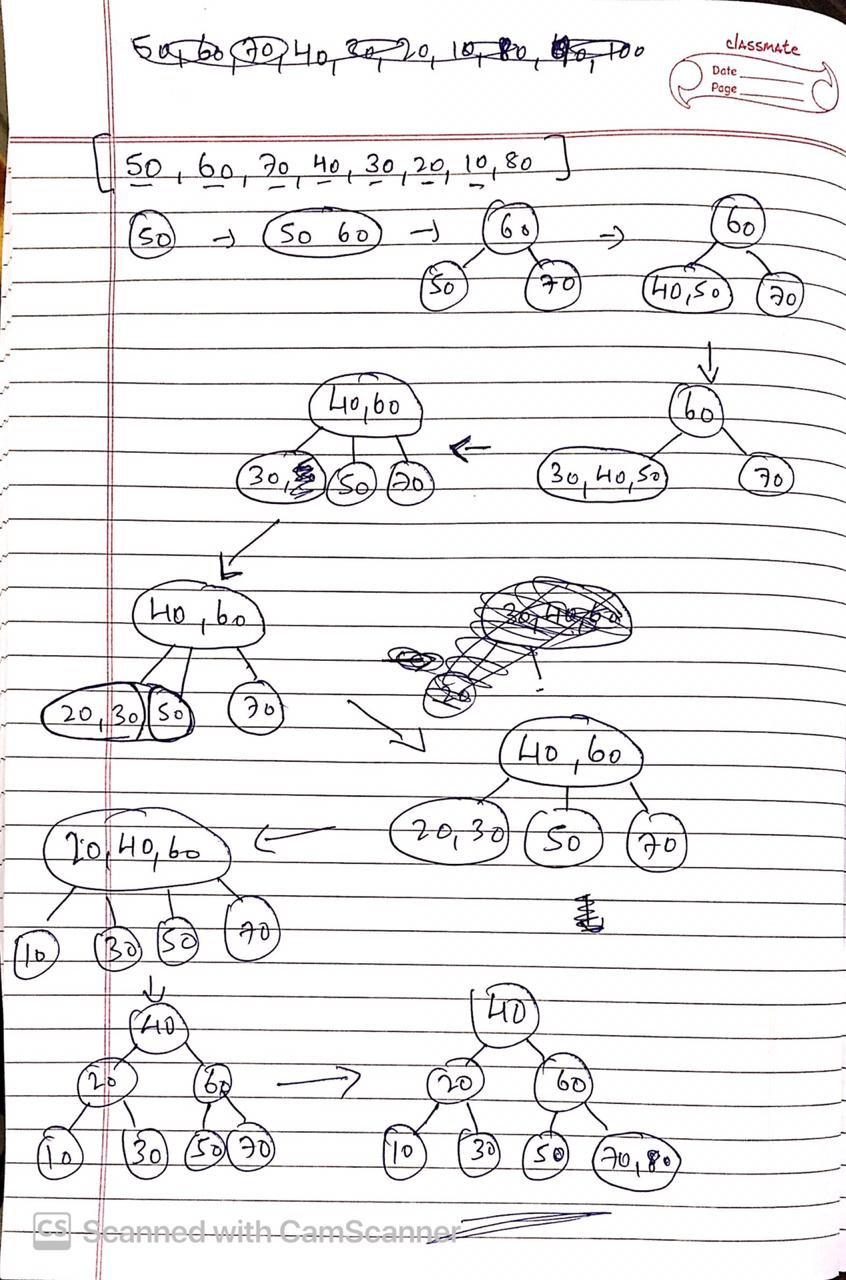 50, 60, 70, 40, 30, 20, 10, 80, 100
classmate
Date
Page
[ 50, 60, 70, 40, 30, 20, 10, 80 ]
50 → 50 60 → 60 → 60
50 70 40,50 70
40,60 60
30, 50 70 30,40,50 70
40,60
20,30 50 70
40,60
20,40,60 20,30 50 70
10 30 50 70
40 40
20 60 20 60
10 30 50 70 10 30 50 70,80
CS Scanned with CamScanner